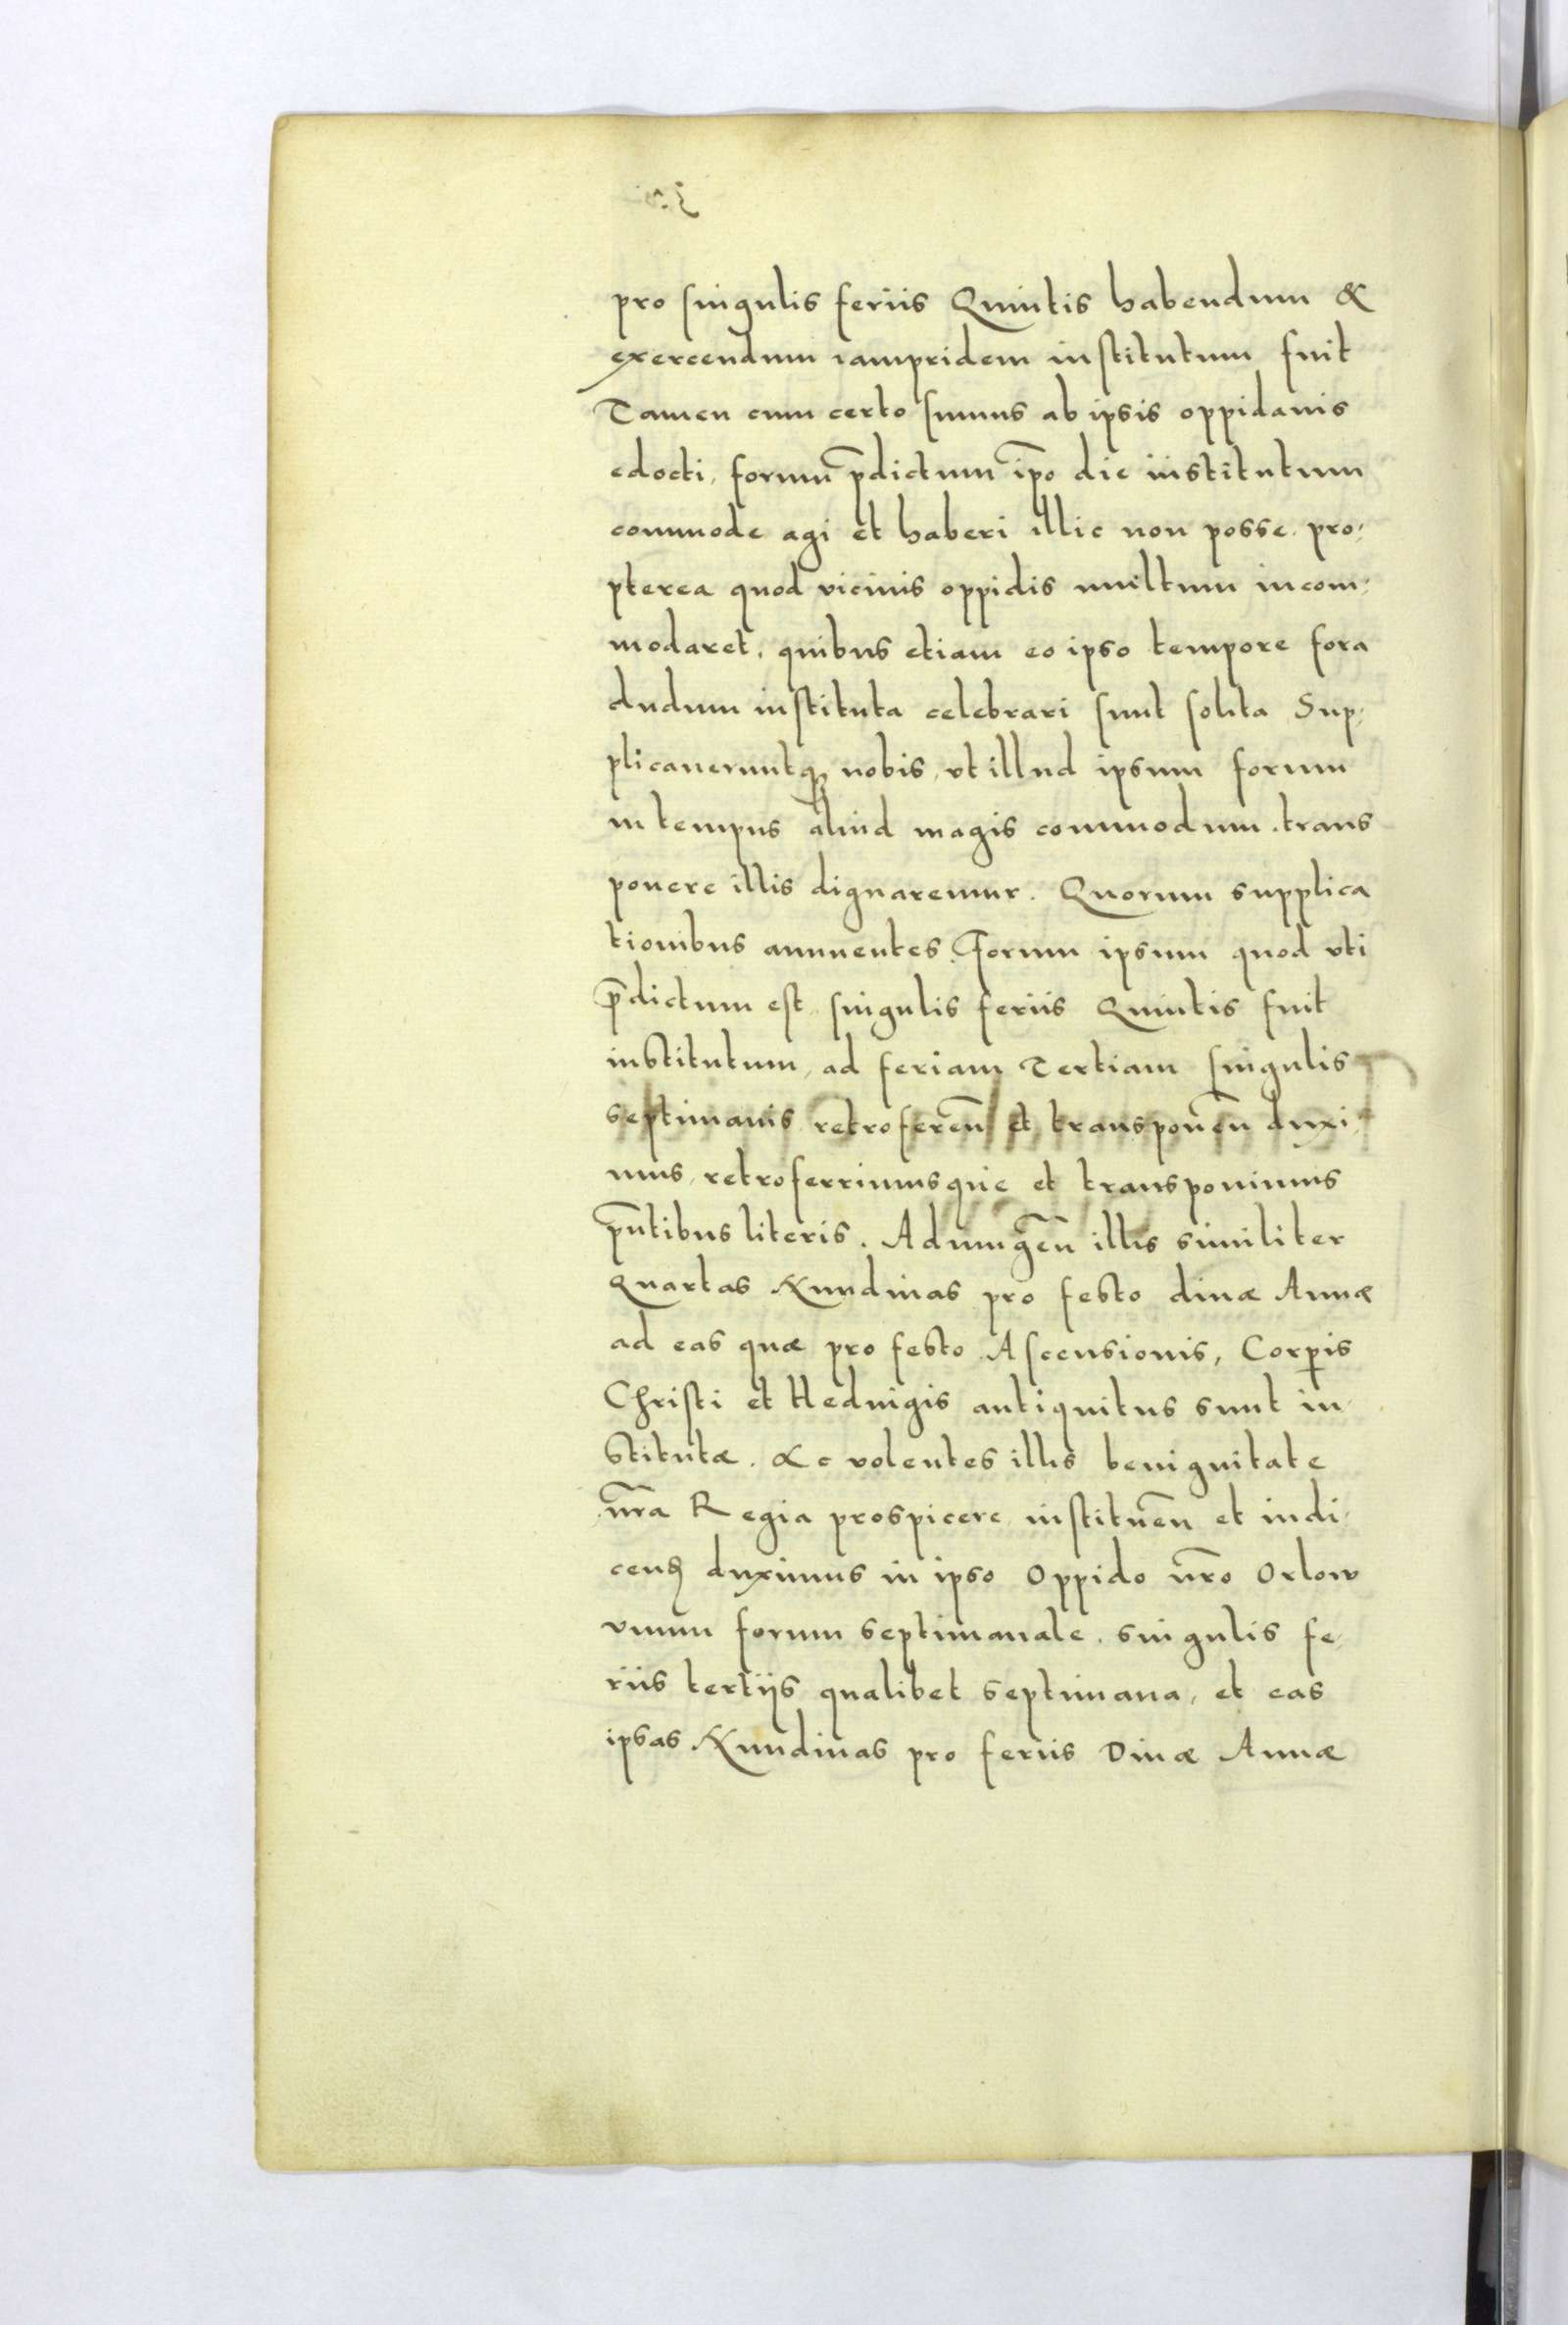 pro singulis feriis Quintis habendum &
exercendum iampridem institutum fuit
Tamen cum certo simus ab ipsis oppidanis
edocti, forum p̄dictum ip̄o die institutum
commode agi et haberi illic non posse. pro-
pterea quod vicinis oppidis multum incom-
modaret. quibus etiam eo ipso tempore fora
dudum instituta celebrari sunt solita Sup-
plicaueruntq₃ nobis, vt illud ipsum forum
in tempus aliud magis commodum. trans
ponere illis dignaremur. Quorum supplica
tionibus annuentes Forum ipsum quod vti
p̄dictum est, singulis feriis Quintis fuit
institutum, ad feriam Tertiam singulis
septimanis retroferen̄ et transponen̄ duxi-
mus, retroferrimusque et transponimus
pn̄tibus literis. Adiungen̄ illis similiter
quartas Nundinas pro festo diuæ Annæ
ad eas quæ pro festo Ascensionis, Corp̄is
Christi et Heduigis antiquitus sunt in-
stitutæ. Ac volentes illis benignitate
nr̄a Regia prospicere instituen̄ et indi-
cenḍ duximus in ipso Oppido nr̄o Orlow
vnum forum septimanale. singulis fe-
riis tertijs qualibet septimana, et eas
ipsas Nundinas pro feriis Diuæ Annæ